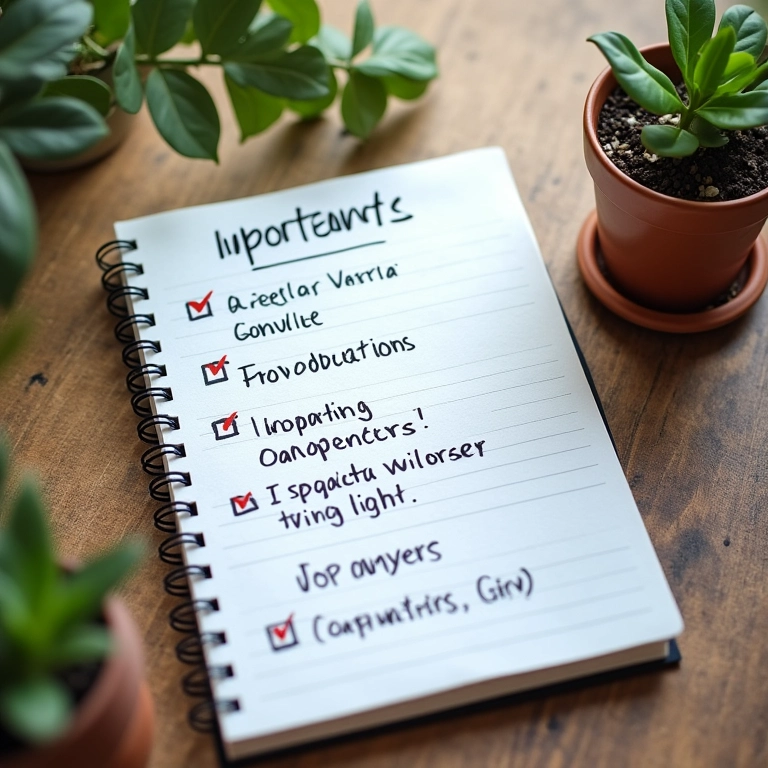 Importeawts
Qreeslar Varria
Gonvlite
Frovodbucations
Imoparting
Oanopencters!
I spqactu wilorser
tving light.
Jop anyers
(oapuntris, Girv)